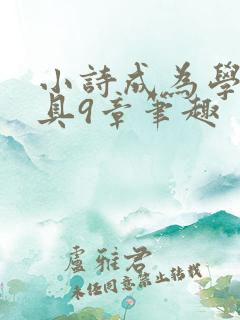 小詩成為學
具9章筆趣
盧雅君
未任同意禁止結載